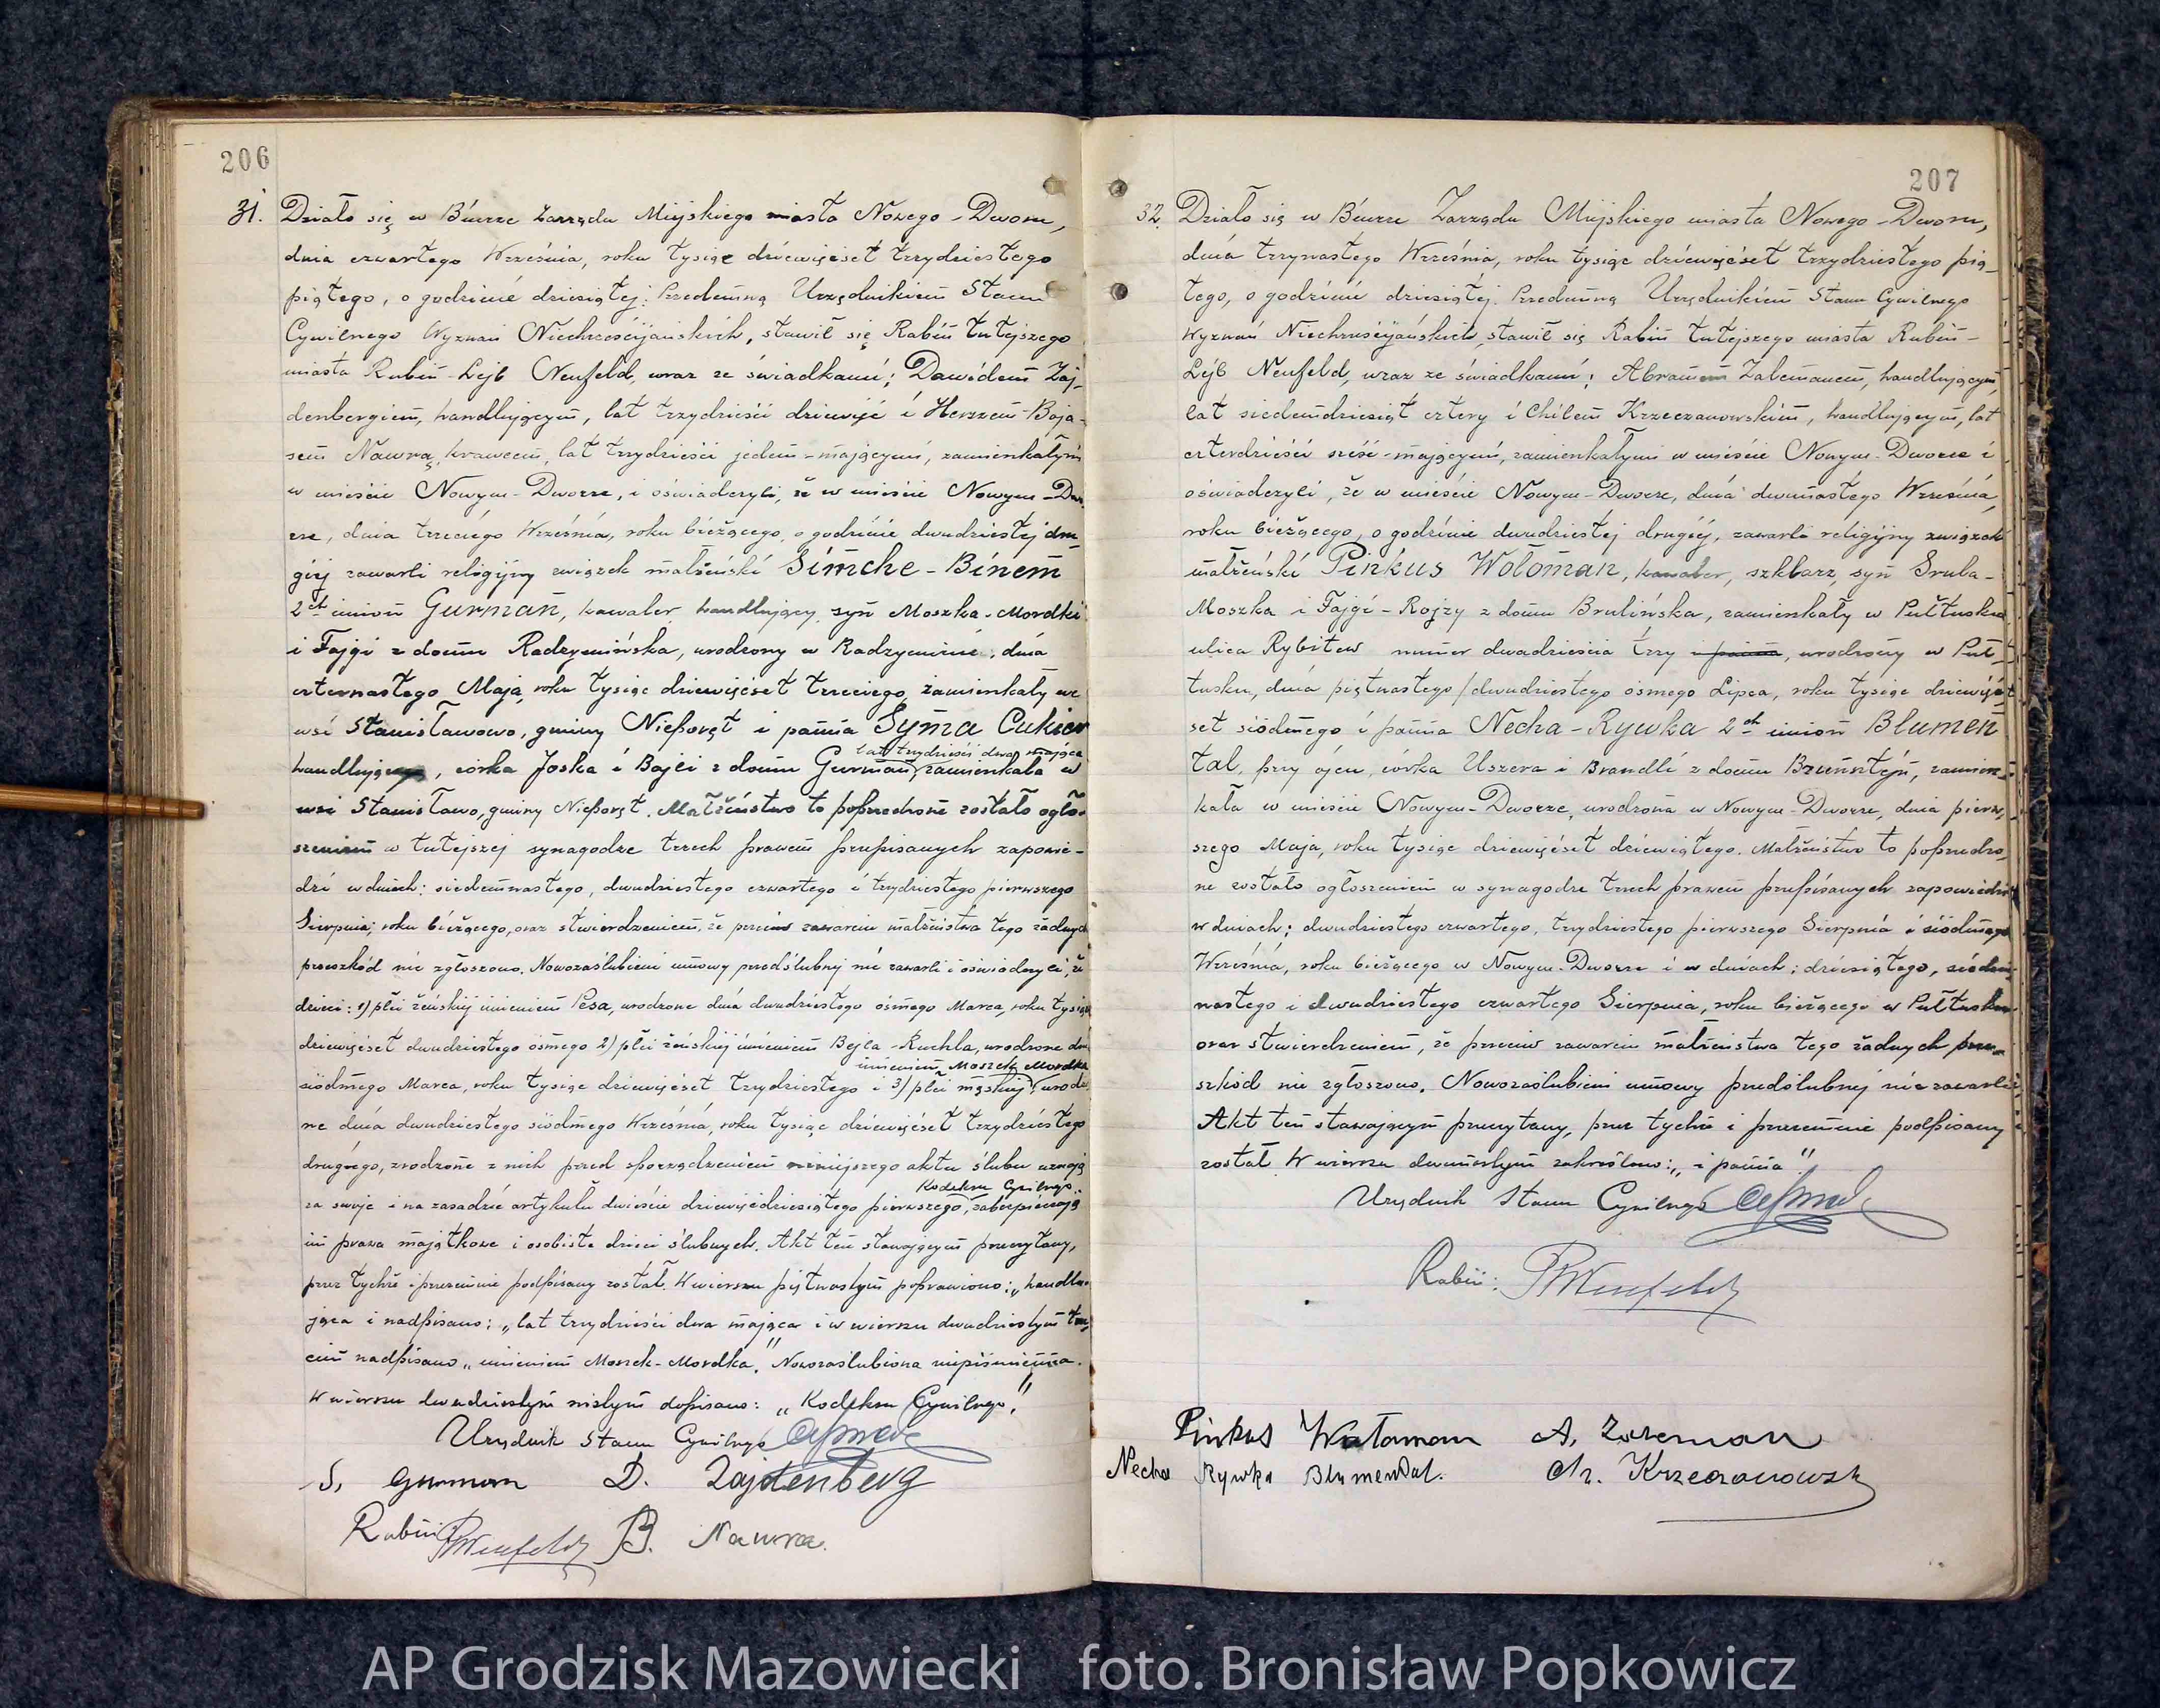 206
31. Działo się w Biurze Zarządu Miejskiego miasta Nowego-Dworu,
dnia czwartego Września, roku tysiąc dziewięćset trzydziestego
piątego, o godzinie dziesiątej. Przedemną Urzędnikiem Stanu
Cywilnego Wyznań Niechrześcijańskich, stawił się Rabin tutejszego
miasta Rubin-Lejb Neufeld, wraz ze świadkami; Dawidem Zaj-
denbergiem, handlującym, lat trzydzieści dziewięć i Herszem-Boja-
sem Nawrą, krawcem, lat trzydzieści jeden-mającymi, zamieszkałymi
w mieście Nowym-Dworze, i oświadczyli, że w mieście Nowym-Dwo-
rze, dnia trzeciego Września, roku bieżącego, o godzinie dwudziestej dru-
giej zawarli religijny związek małżeński Simche-Binem
2ch imion Gurman, kawaler, handlujący, syn Moszka-Mordki
i Fajgi z domu Radzymińska, urodzony w Radzyminie, dnia
czternastego Maja, roku tysiąc dziewięćset trzeciego, zamieszkały we
wsi Stanisławowo, gminy Nieporęt i panna Syma Cukier
lat trzydzieści dwa mająca
handlująca, córka Joska i Bajli z domu Gurman, zamieszkała w
wsi Stanisławo, gminy Nieporęt. Małżeństwo to poprzedzone zostało ogło-
szeniem w tutejszej synagodze trzech prawem przepisanych zapowie-
dzi w dniach: siedemnastego, dwudziestego czwartego i trzydziestego pierwszego
Sierpnia, roku bieżącego, oraz stwierdzeniem, że przeciw zawarciu małżeństwa tego żadnych
przeszkód nie zgłoszono. Nowozaślubieni umowy przedślubnej nie zawarli i oświadczyli, że
dzieci: 1) płci żeńskiej imieniem Pesa, urodzone dnia dwudziestego ósmego Marca, roku tysiąc
dziewięćset dwudziestego ósmego 2) płci żeńskiej imieniem Bejla-Ruchla, urodzone dnia
imieniem Moszek Mordka
siódmego Marca, roku tysiąc dziewięćset trzydziestego i 3) płci męskiej, urodzo-
ne dnia dwudziestego siódmego Września, roku tysiąc dziewięćset trzydziestego
drugiego, zrodzone z nich przed sporządzeniem niniejszego aktu ślubu uznają
Kodeksu Cywilnego
za swoje i na zasadzie artykułu dwieście dziewięćdziesiątego pierwszego, zabezpieczają
im prawa majątkowe i osobiste dzieci ślubnych. Akt ten stawającym przeczytany,
przez tychże i przezemnie podpisany został. W wierszu piętnastym poprawiono: „handlu-
jąca i nadpisano: „lat trzydzieści dwa mająca i w wierszu dwudziestym trze-
cim nadpisano „imieniem Moszek-Mordka." Nowozaślubiona niepiśmienna.
W wierszu dwudziestym szóstym dopisano: „Kodeksu Cywilnego."
Urzędnik Stanu Cywilnego
S. Gurman D. Zajdenberg
Rabin RNeufeld B. Nawra.
207
32. Działo się w Biurze Zarządu Miejskiego miasta Nowego-Dworu,
dnia trzynastego Września, roku tysiąc dziewięćset trzydziestego pią-
tego, o godzinie dziesiątej. Przedemną Urzędnikiem Stanu Cywilnego
Wyznań Niechrześcijańskich, stawił się Rabin tutejszego miasta Rubin-
Lejb Neufeld, wraz ze świadkami; Abramem Zalcmanem, handlującym,
lat siedemdziesiąt cztery i Chilem Krzeczanowskim, handlującym, lat
czterdzieści sześć-mającymi, zamieszkałymi w mieście Nowym-Dworze i
oświadczyli, że w mieście Nowym-Dworze, dnia dwunastego Września,
roku bieżącego, o godzinie dwudziestej drugiej, zawarli religijny związek
małżeński Pinkus Wołoman, kawaler, szklarz, syn Srula-
Moszka i Fajgi-Rojzy z domu Brulińska, zamieszkały w Pułtusku
ulica Rybitew numer dwadzieścia trzy i panna, urodzony w Puł-
tusku, dnia piętnastego/dwudziestego ósmego Lipca, roku tysiąc dziewięć-
set siódmego i panna Necha-Rywka 2ch imion Blumen
tal, przy ojcu, córka Uszera i Brandli z domu Brunsztejn, zamiesz-
kała w mieście Nowym-Dworze, urodzona w Nowym-Dworze, dnia pierw-
szego Maja, roku tysiąc dziewięćset dziewiątego. Małżeństwo to poprzedzo-
ne zostało ogłoszeniem w synagodze trzech prawem przepisanych zapowiedzi
w dniach; dwudziestego czwartego, trzydziestego pierwszego Sierpnia i siódmego
Września, roku bieżącego w Nowym-Dworze i w dniach; dziesiątego, siedem-
nastego i dwudziestego czwartego Sierpnia, roku bieżącego w Pułtusku
oraz stwierdzeniem, że przeciw zawarciu małżeństwa tego żadnych prze-
szkód nie zgłoszono. Nowozaślubieni umowy przedślubnej nie zawarli.
Akt ten stawającym przeczytany, przez tychże i przezemnie podpisany
został. W wierszu dwunastym zakreślono: „i panna."
Urzędnik Stanu Cywilnego
Rabin: RNeufeld
Pinkus Wołoman A. Zalcman
Necha Rywka Blumendal. Ch. Krzeczanowski
AP Grodzisk Mazowiecki foto. Bronisław Popkowicz